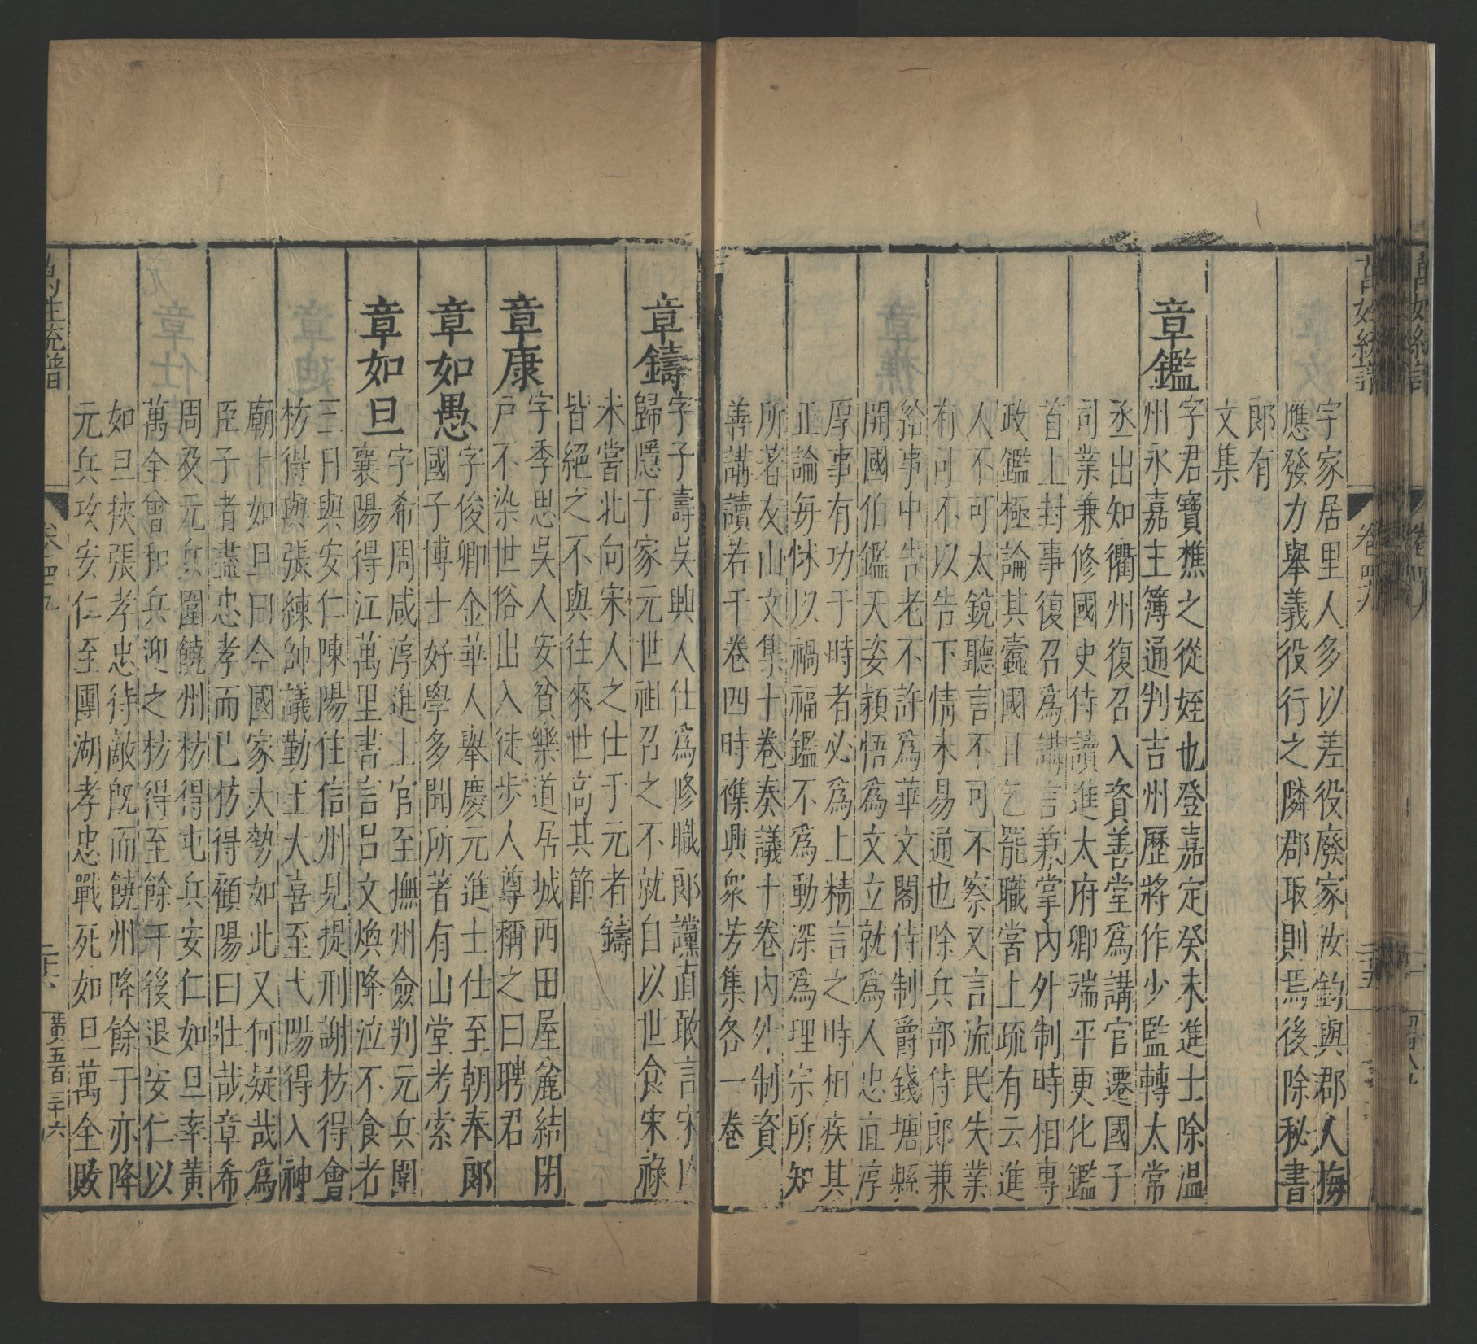 字家居里人多以差役廢家汝鈞與郡人梅
應發力舉義役行之隣郡取則焉後除秘書
郎有
文集
章鑑字君寶樵之從姪也登嘉定癸未進士除溫
州永嘉主簿通判吉州歷將作少監轉太常
丞出知衢州復召入資善堂爲講官遷國子
司業兼修國史侍讀進太府卿端平更化鑑
首上封事復召爲講官兼掌內外制時相專
政鑑極論其蠹國且乞罷職嘗上疏有云進
人不可太銳聽言不可不察又言流民失業
有司不以告下情未易通也除兵部侍郎兼
給事中告老不許爲華文閣侍制爵錢塘縣
開國伯鑑天姿穎悟爲文立就爲人忠直淳
厚事有功于時者必爲上精言之時相疾其
正論每怵以禍福鑑不爲動深爲理宗所知
所著友山文集十卷奏議十卷內外制資
善講讀若干卷四時儁興衆芳集各一卷
章鑄字子壽吳興人仕爲修職郎讜直敢言宋
歸隱于家元世祖召之不就自以世食宋祿
未嘗北向宋人之仕于元者鑄
皆絕之不與往來世高其節
章康字季思吳人安貧樂道居城西田屋龕結閉
戶不染世俗出入徒步人尊稱之曰聘君
章如愚字俊卿金華人舉慶元進士仕至朝奉郎
國子博士好學多聞所著有山堂考索
章如旦字希周咸淳進士官至撫州僉判元兵圍
襄陽得江萬里書言呂文煥降泣不食者
三日與安仁陳陽住信州見提刑謝枋得會
枋得與張練帥議勤王大喜至弋陽得入神
廟卜如旦曰今國家大勢如此又何疑哉爲
臣子者盡忠孝而已枋得顧陽曰壯哉章希
周及元兵圍饒州枋得屯兵安仁如旦率黃
萬全會和兵迎之枋得至餘干後退安仁以
如旦挾張孝忠待敵旣而饒州降餘于亦降
元兵攻安仁至團湖孝忠戰死如旦萬全敗
萬姓統譜
卷四九
二十六
黃五百三十六